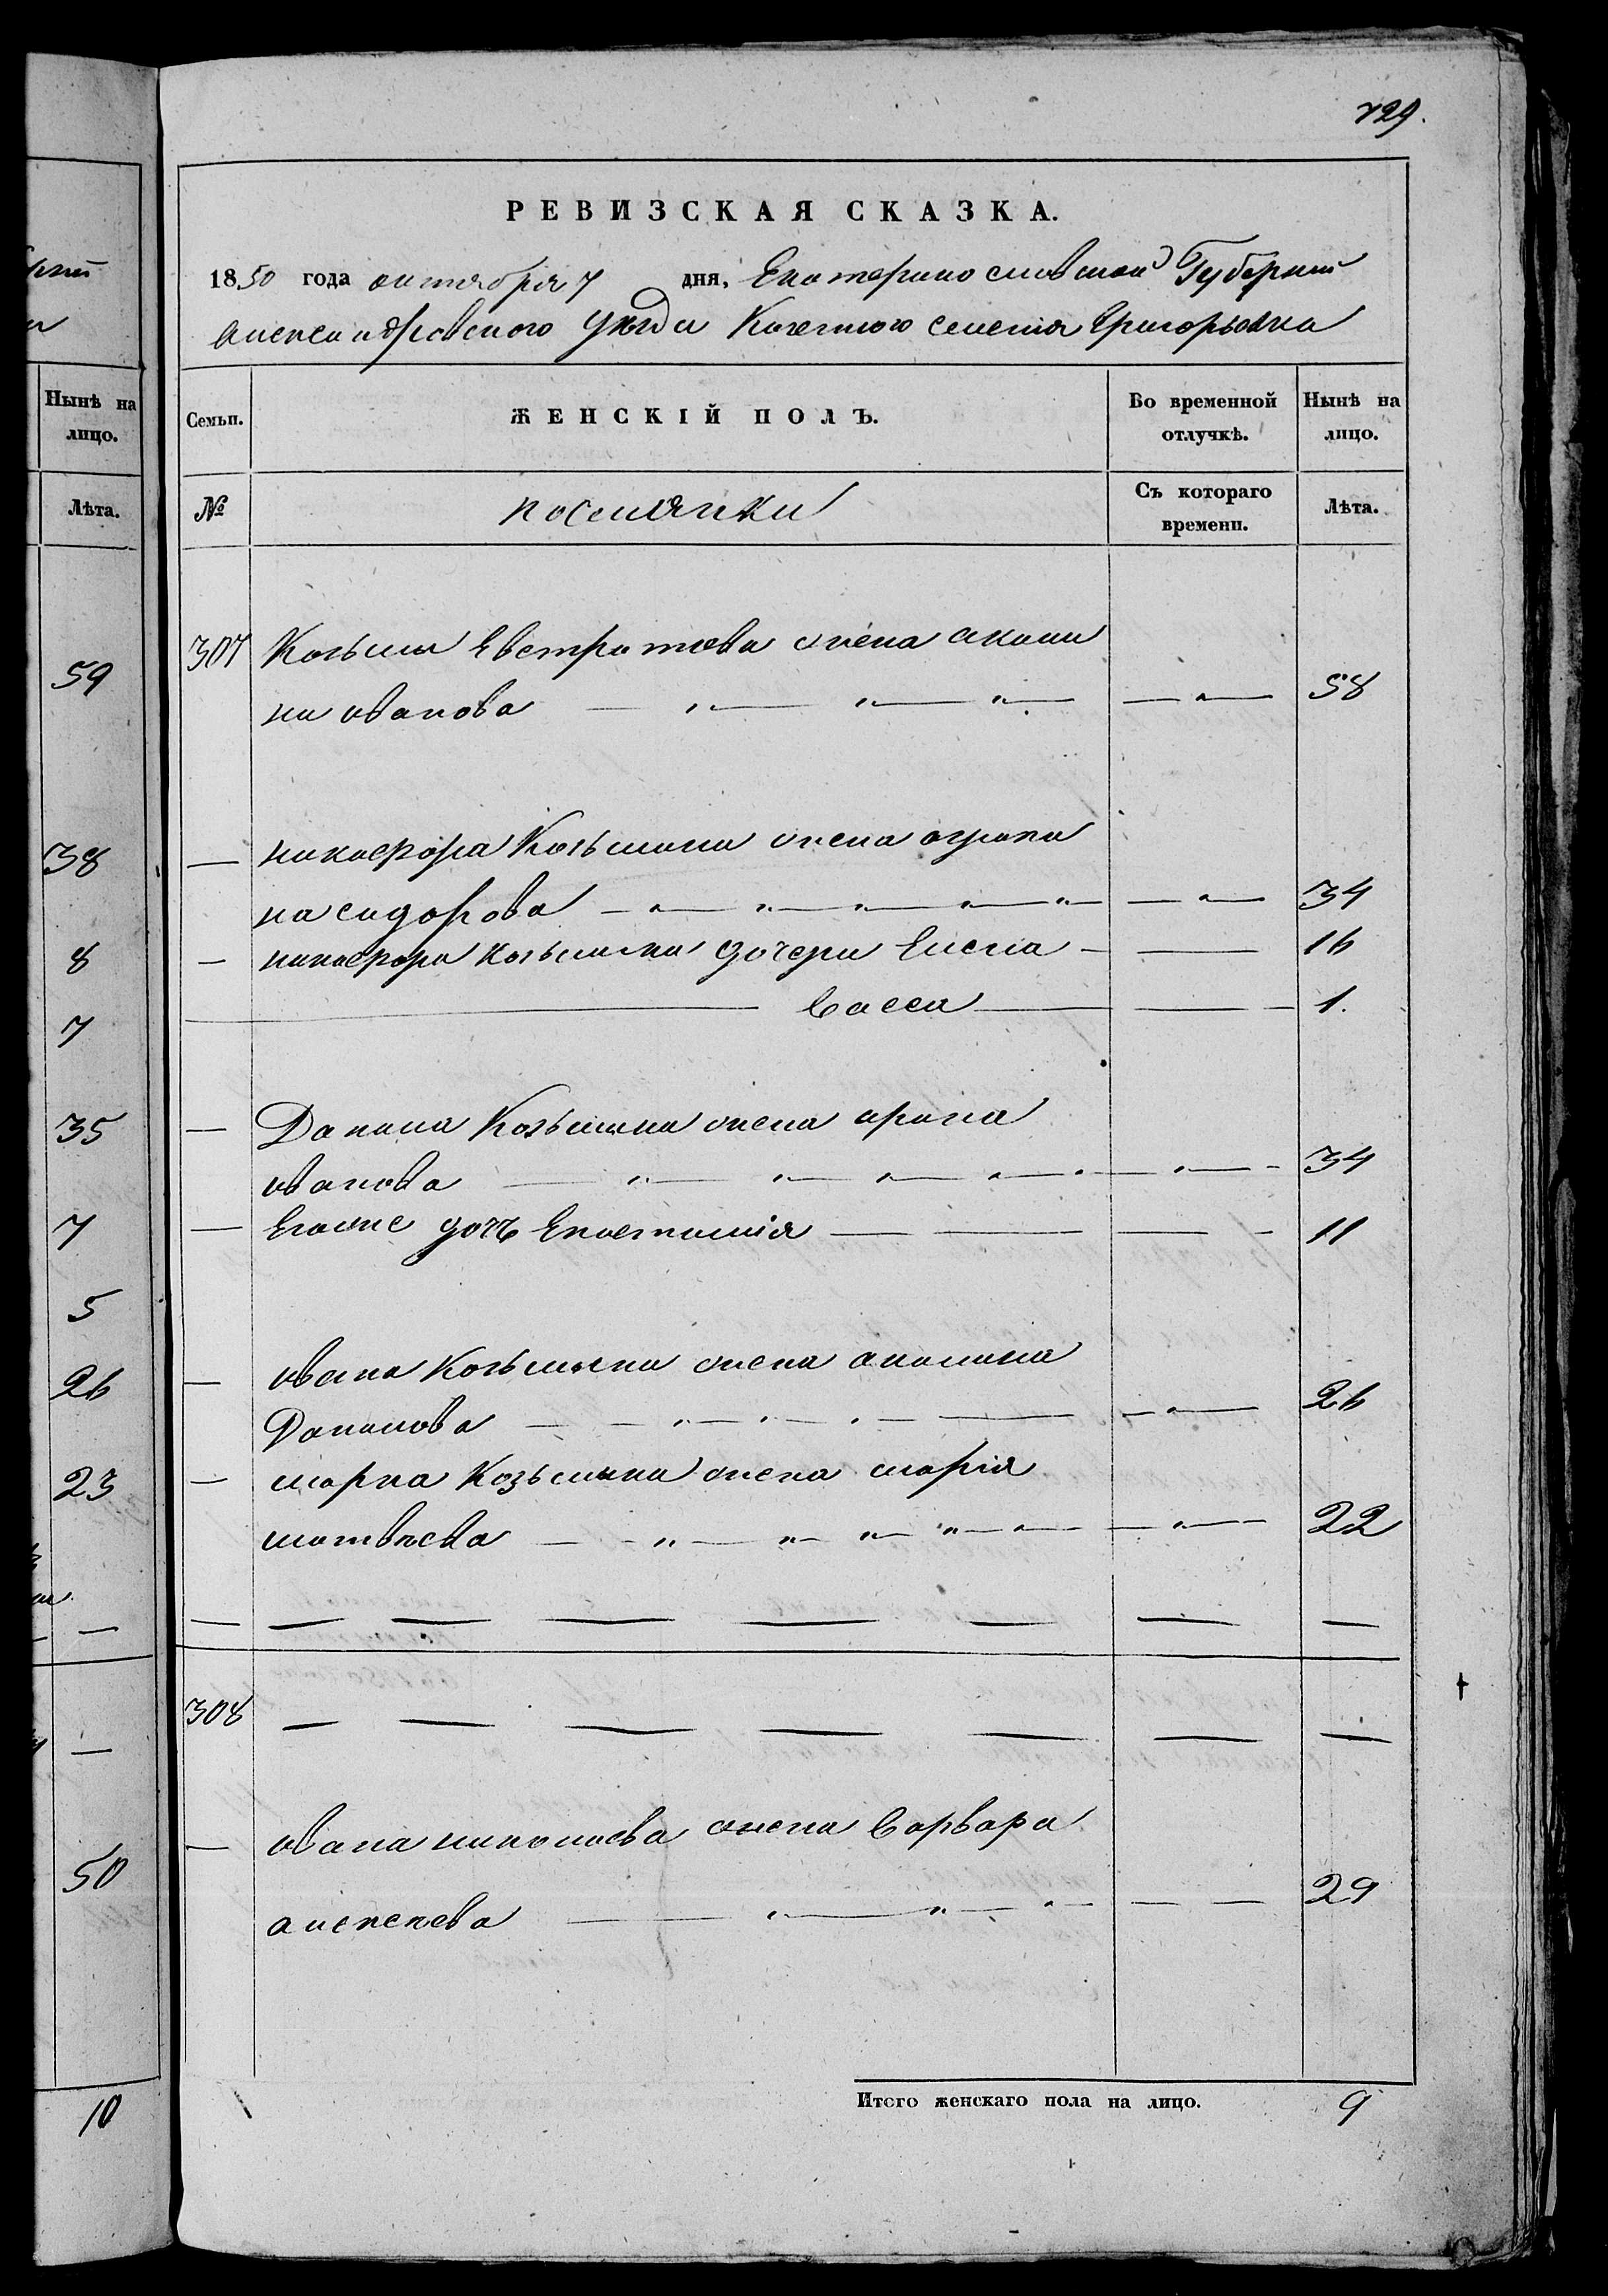 729.
РЕВИЗСКАЯ СКАЗКА.
1850 года октября 7 дня, Екатеринославской Губернии
Александровского Уезда Козенного селения Григорьовка
Нынѣ на лицо.
Лѣта.
Семьи. ЖЕНСКІЙ ПОЛЪ. Во временной отлучкѣ. Нынѣ на лицо.
№ поселянки Съ котораго времени. Лѣта.
59
38
8
7
35
7
5
26
23
50
10
307 Козьмы Евстратова жена акули
на иванова — „ — „ — „ — — „ — 58
— никифора Козьмина жена агрипи
на сидорова — „ — „ — „ — „ — „ — — „ — 34
— никифора козьмина дочери Елена — — 16
— Васса — — 1.
— Данила Козьмина жена арина
иванова — „ — „ — „ — „ — „ — 34
— Егоже дочь Екастасия — — — 11
— ивана Козьмина жена акилина
Данилова — — „ — „ — „ — — „ — 26
— марка Козьмина жена марія
матвѣева — „ — „ — „ — „ — „ — — „ — 22
— — — — — — — —
308 — — — — — — —
— ивана николаева жена Варвара
алексеева — „ — „ — „ — — — 29
Итого женскаго пола на лицо. 9